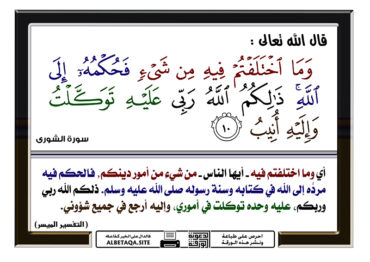 قال الله تعالى :
وَمَا ٱخْتَلَفْتُمْ فِيهِ مِن شَىْءٍ فَحُكْمُهُۥٓ إِلَى
ٱللَّهِ ۚ ذَٰلِكُمُ ٱللَّهُ رَبِّى عَلَيْهِ تَوَكَّلْتُ
وَإِلَيْهِ أُنِيبُ ١٠
سورة الشورى
أي وما اختلفتم فيه ـ أيها الناس ـ من شيء من أمور دينكم، فالحكم فيه
مردّه إلى الله في كتابه وسنة رسوله صلى الله عليه وسلم. ذلكم الله ربي
وربكم، عليه وحده توكلت في أموري، وإليه أرجع في جميع شؤوني.
( التفسير الميسر)
احرص على طباعة
ونشر هذه الورقة
فالدال على الخير كفاعله
ALBETAQA.SITE